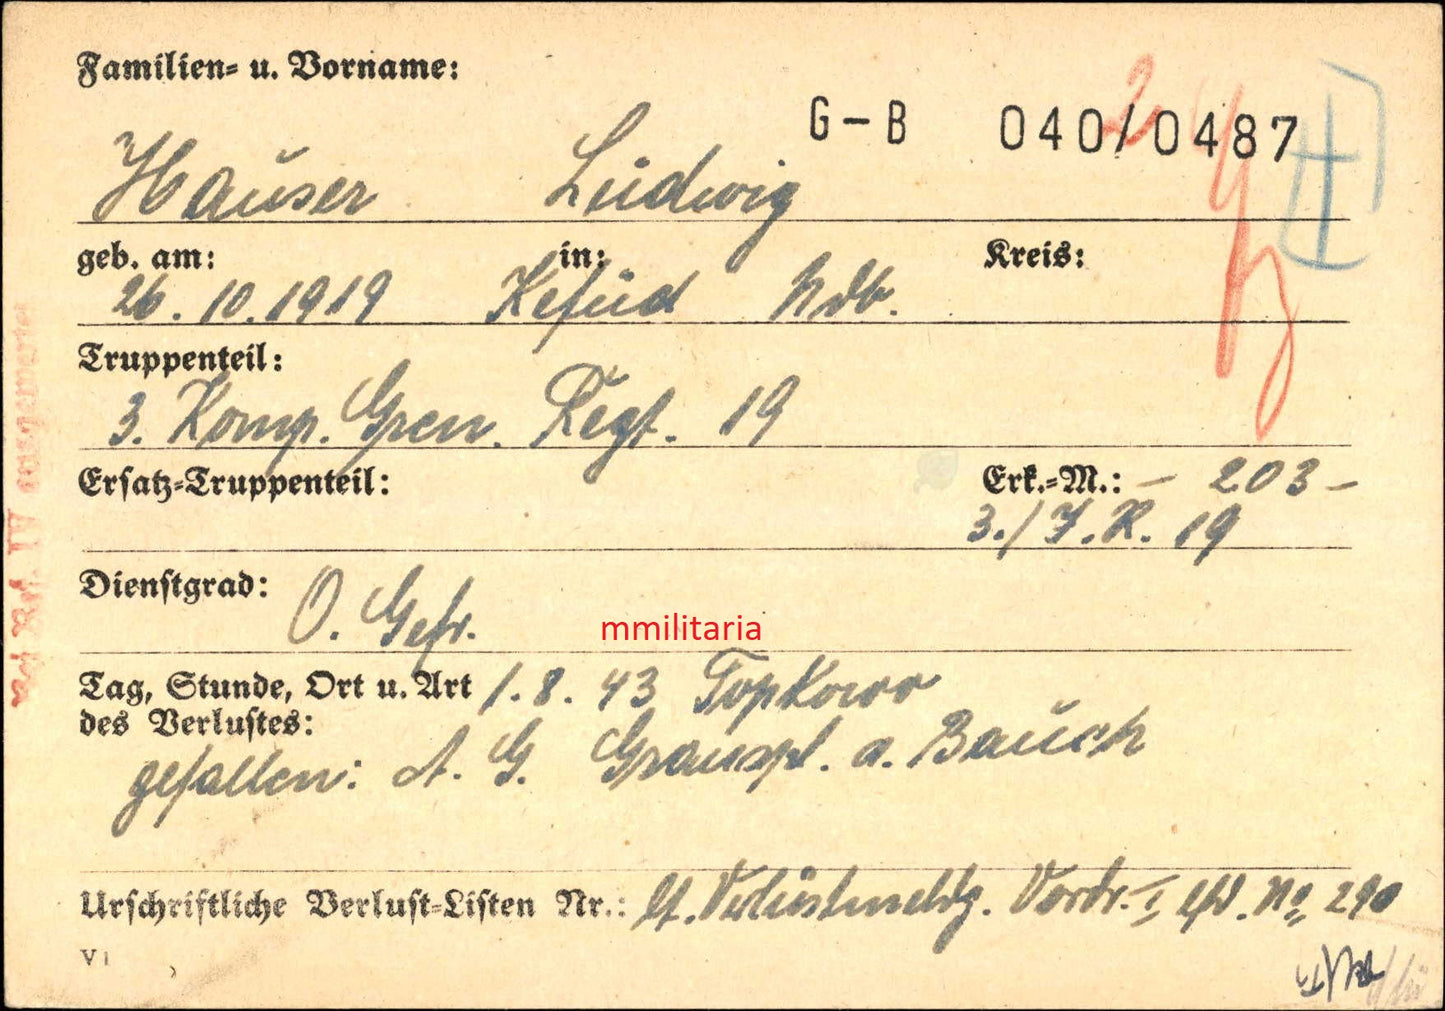 Familien- u. Vorname:
G-B 040/0487
Hauser Ludwig
geb. am: in: Kreis:
26.10.1919 Ndb.
Truppenteil:
3. Komp. Gren. Regt. 19
Ersatz-Truppenteil: Erk.-M.: - 203 -
3./I.R. 19
Dienstgrad: O. Gefr.
mmilitaria
Tag, Stunde, Ort u. Art 1.8.43 Topkowo
des Verlustes:
gefallen: A. G. Granspl. a. Bauch
Urschriftliche Verlust-Listen Nr.: lt. Verlustmeldg. Vordr. I lfd. No 290
V I